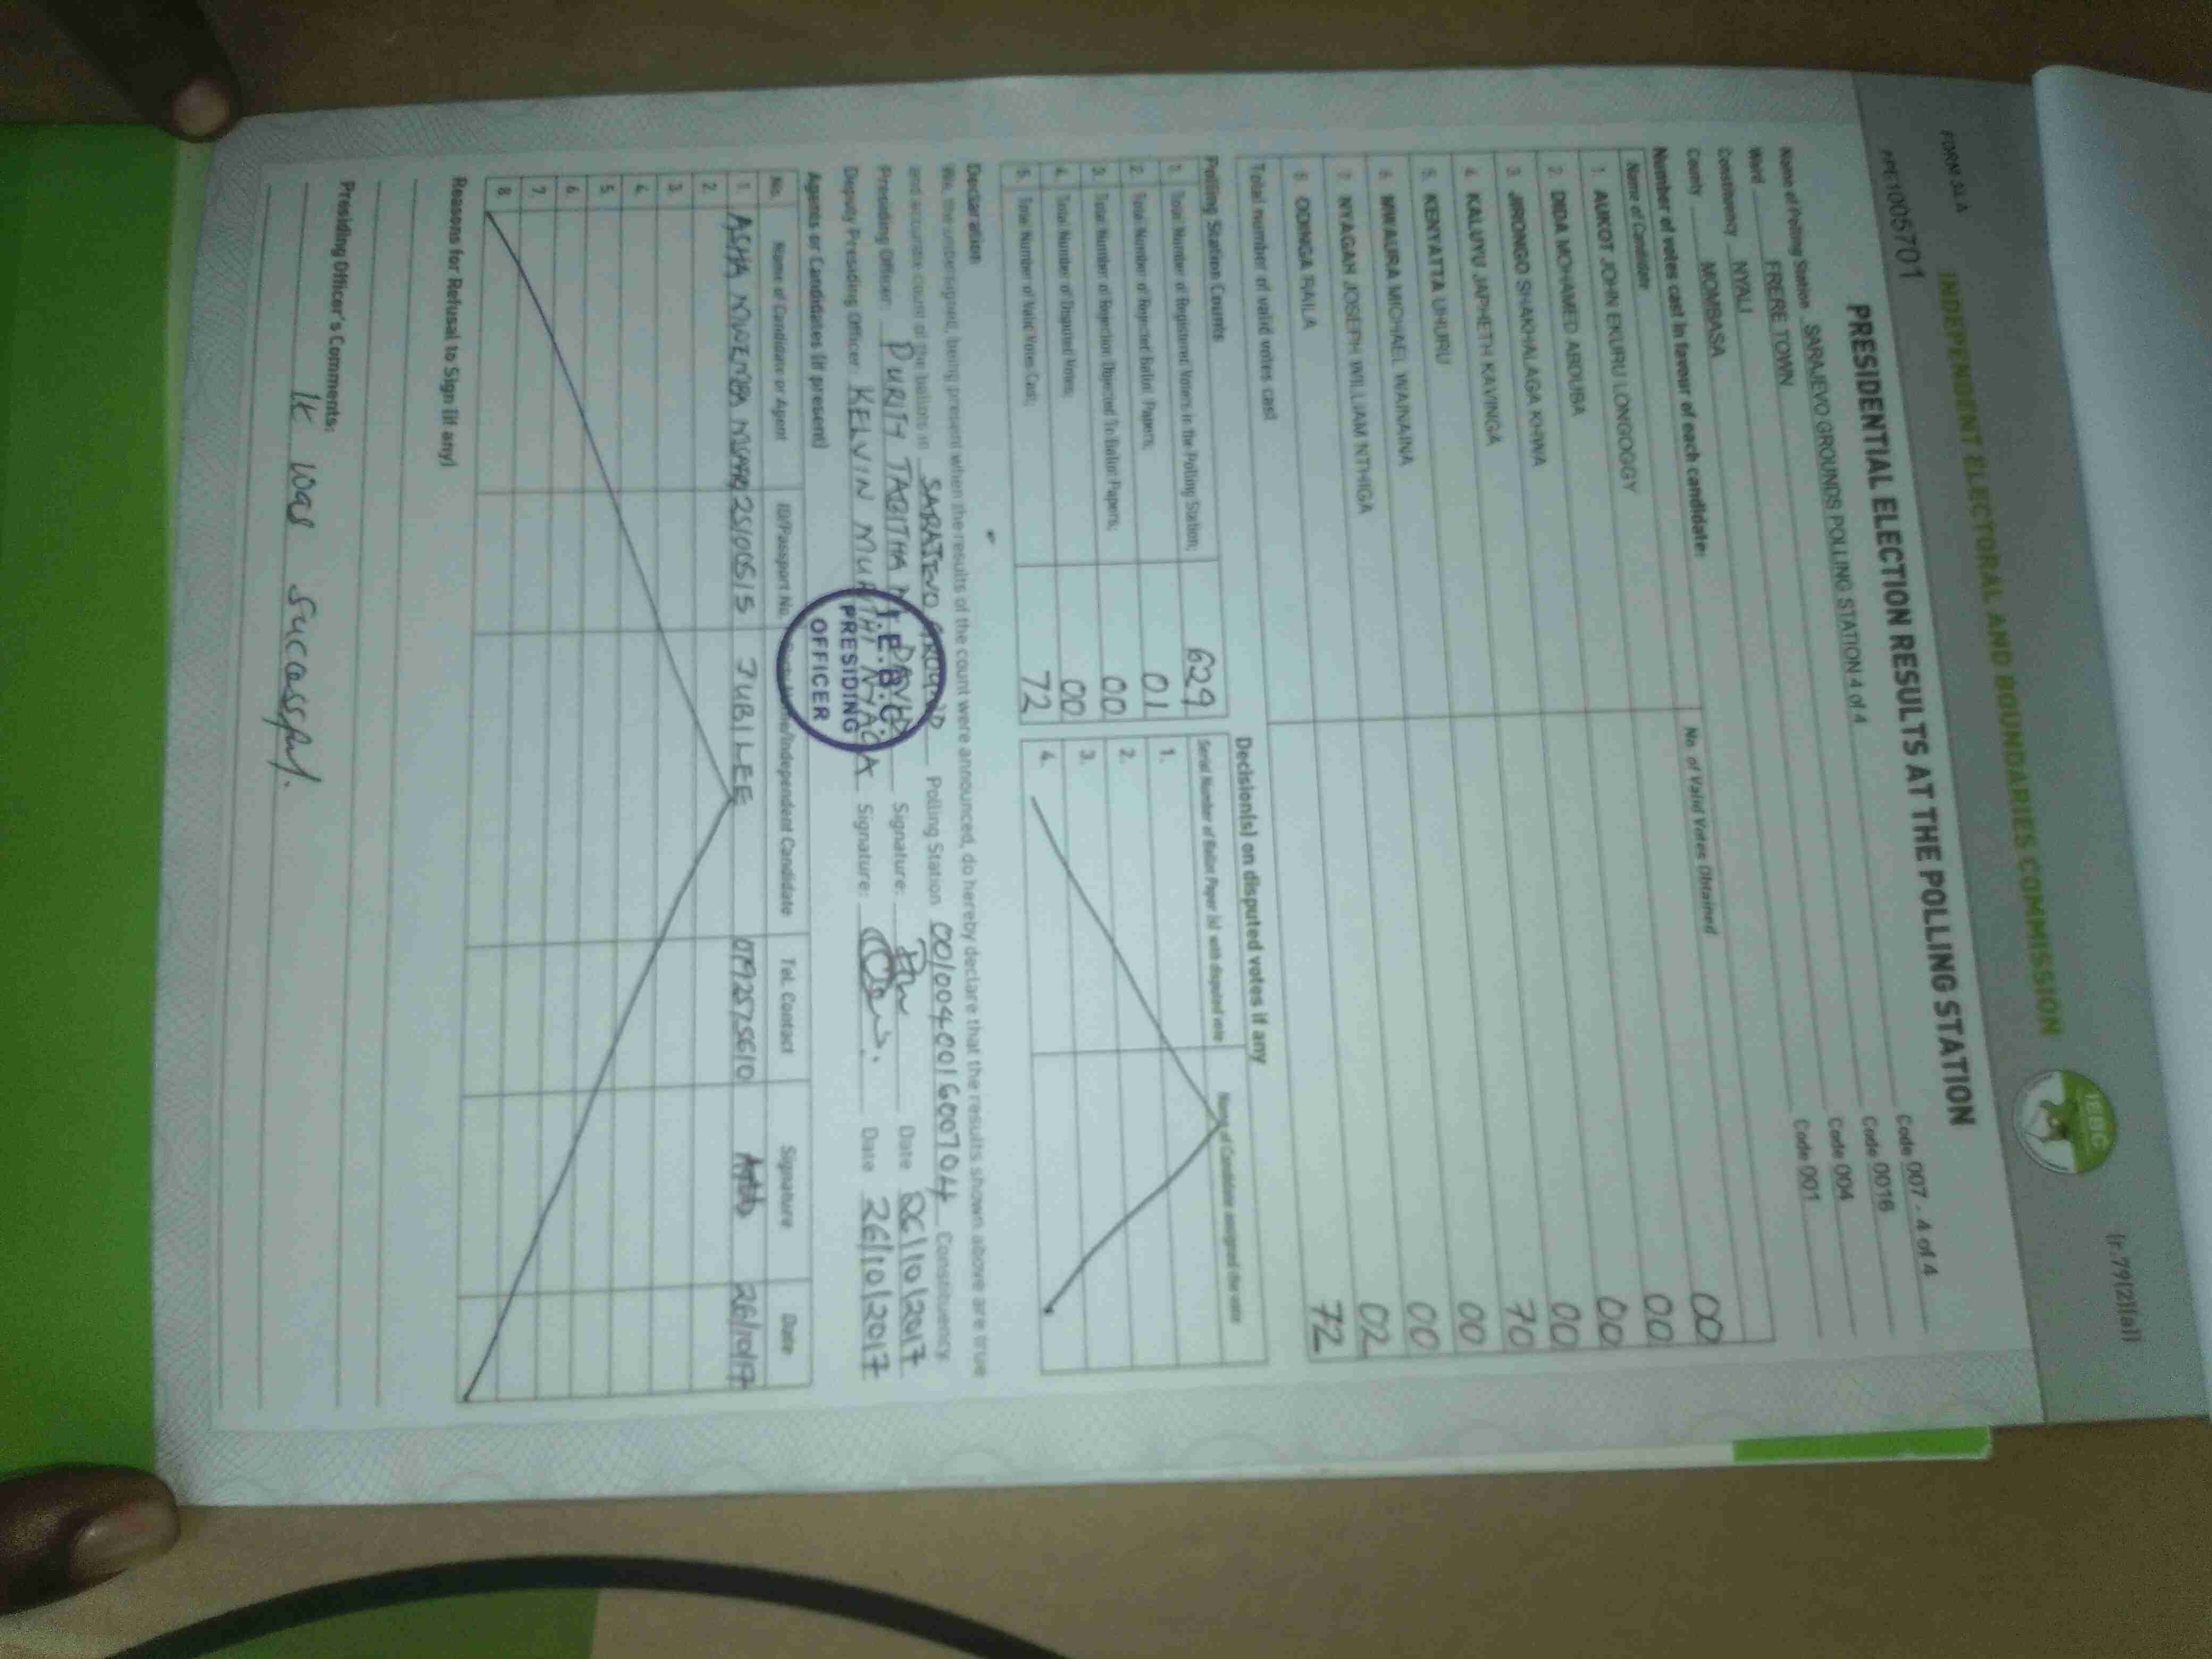 FORM 34A
(r.79(2)(a))
INDEPENDENT ELECTORAL AND BOUNDARIES COMMISSION
IEBC
PRESIDENTIAL ELECTION RESULTS AT THE POLLING STATION
Name of Polling Station SARAJEVO GROUNDS POLLING STATION 4 of 4 Code 007 - 4 of 4
Ward FRERE TOWN Code 0016
Constituency NYALI Code 004
County MOMBASA Code 001
Number of votes cast in favour of each candidate:
Name of Candidate No. of Valid Votes Obtained
1. AUKOT JOHN EKURU LONGOGGY 00
2. DIDA MOHAMED ABDUBA 00
3. JIRONGO SHAKHALAGA KHWA 00
4. KALUYU JAPHETH KAVINGA 00
5. KENYATTA UHURU 70
6. MWAURA MICHAEL WAINAINA 00
7. NYAGAH JOSEPH WILLIAM NTHIGA 00
8. ODINGA RAILA 02
Total number of valid votes cast 72
Polling Station Counts
1. Total Number of Registered Voters in the Polling Station; 629
2. Total Number of Rejected Ballot Papers; 01
3. Total Number of Rejection Objected To Ballot Papers; 00
4. Total Number of Disputed Votes; 00
5. Total Number of Valid Votes Cast; 72
Decision(s) on disputed votes if any
Serial Number of Ballot Paper (s) with disputed vote Name of Candidate assigned the vote
1.
2.
3.
4.
Declaration
We, the undersigned, being present when the results of the count were announced, do hereby declare that the results shown above are true
and accurate count of the ballots in SARAJEVO GROUND Polling Station 001004001600704 Constituency
Presiding Officer: PURITY TABITHA Signature: Date 26/10/2017
Deputy Presiding Officer KELVIN MURITHI NYAGA Signature: Date 26/10/2017
I.E.B.C.
PRESIDING
OFFICER
Agents or Candidates (if present)
No. Name of Candidate or Agent ID/Passport No. Name/Independent Candidate Tel. Contact Signature Date
1. ASHA 25100515 JUBILEE 0792575610 26/10/17
2.
3.
4.
5.
6.
7.
8.
Reasons for Refusal to Sign (if any)
Presiding Officer's Comments:
It was successful.